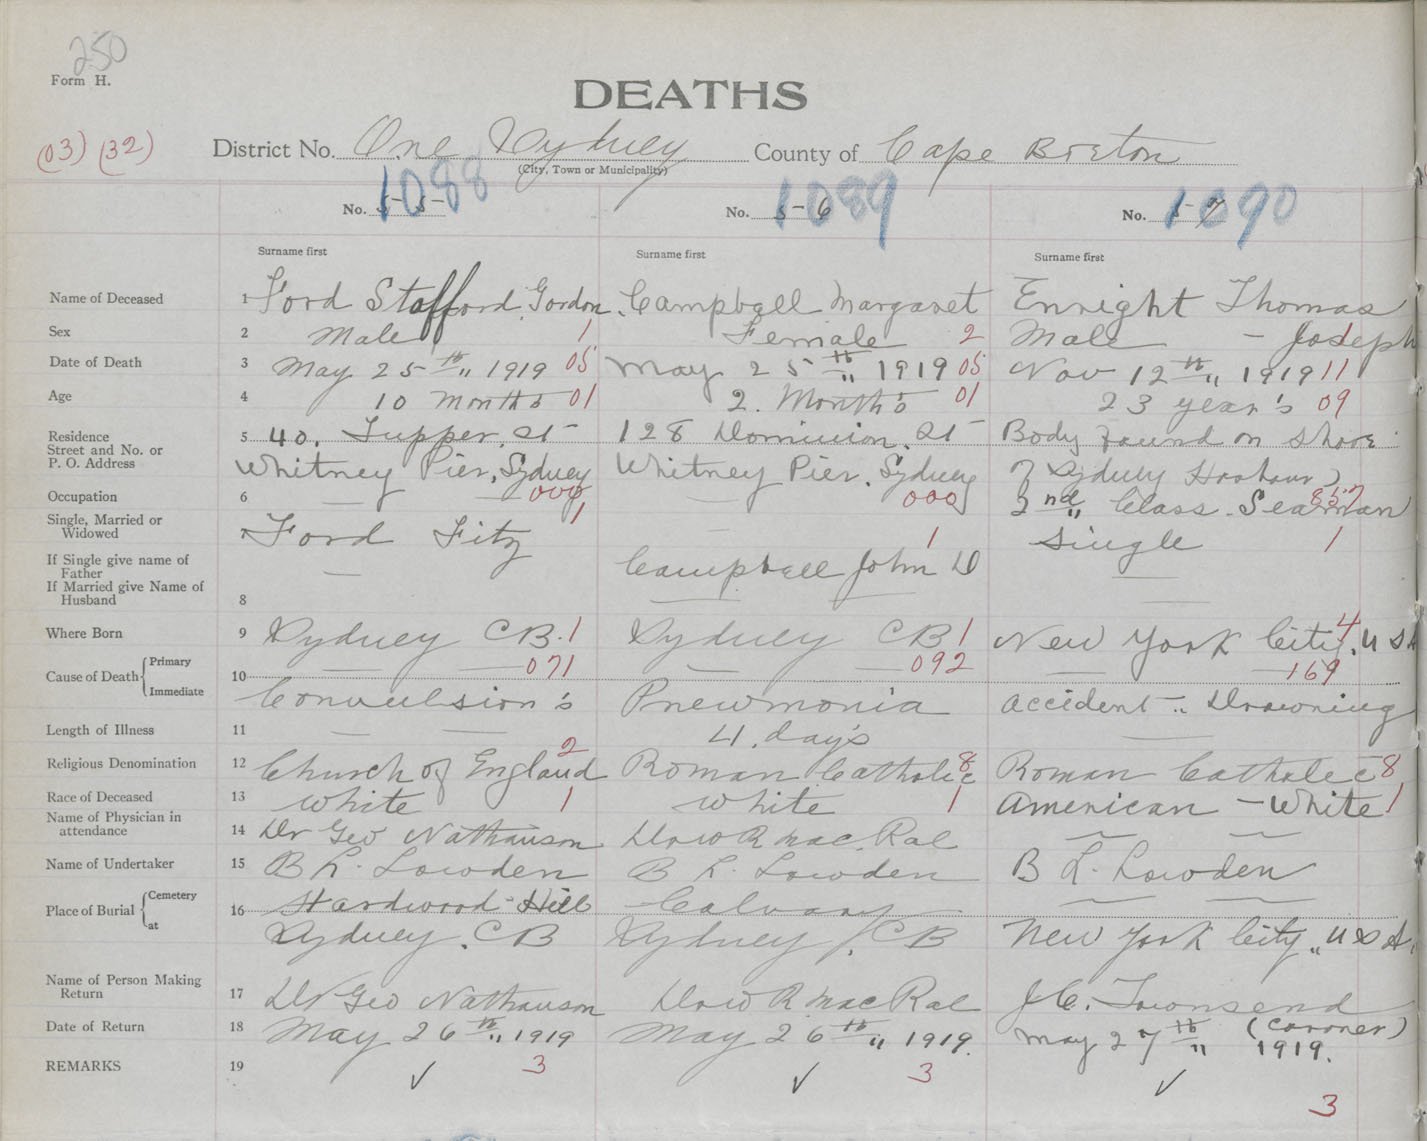 250
Form H.
DEATHS
(03) (32)
District No. One Sydney County of Cape Breton
(City, Town or Municipality)
1088 1089 1090
No. 55 No. 56 No. 57
Surname first Surname first Surname first
Name of Deceased 1 Ford Stafford Gordon Campbell Margaret Enright Thomas
Sex 2 Male 1 Female 2 Male - Joseph 1
Date of Death 3 May 25th 1919 05 May 25th 1919 05 Nov 12th 1919 11
Age 4 10 Months 01 2. Months 01 23 year's 09
Residence
Street and No. or
P. O. Address
5 40, Tupper, St 128 Dominion, St Body found on shore
Whitney Pier, Sydney Whitney Pier, Sydney of Sydney Harbour
Occupation 6 — 000 — 000 2nd Class Seaman 857
Single, Married or
Widowed
7 1 — 1 Single 1
If Single give name of
Father
Ford Fitz Campbell John D —
If Married give Name of
Husband
8 — — —
Where Born 9 Sydney CB. 1 Sydney CB 1 New York City, USA 4
Cause of Death { Primary 10 — 071 — 092 — 169
Immediate Convulsion's Pneumonia Accident Drowning
Length of Illness 11 — — 4. day's —
Religious Denomination 12 Church of England 2 Roman Catholic 8 Roman Catholic 8
Race of Deceased 13 White 1 White 1 American - White 1
Name of Physician in
attendance
14 Dr Geo Nathanson D W R MacRae — —
Name of Undertaker 15 B L. Lowden B L. Lowden B L. Lowden
Place of Burial { Cemetery 16 Hardwood Hill Calvary — —
at Sydney, CB Sydney, CB New York City, USA,
Name of Person Making
Return
17 Dr Geo Nathanson D W R MacRae J C. Townsend
(Coroner)
Date of Return 18 May 26th 1919 May 26th 1919. May 27th 1919.
REMARKS 19 ✓ 3 ✓ 3 ✓ 3